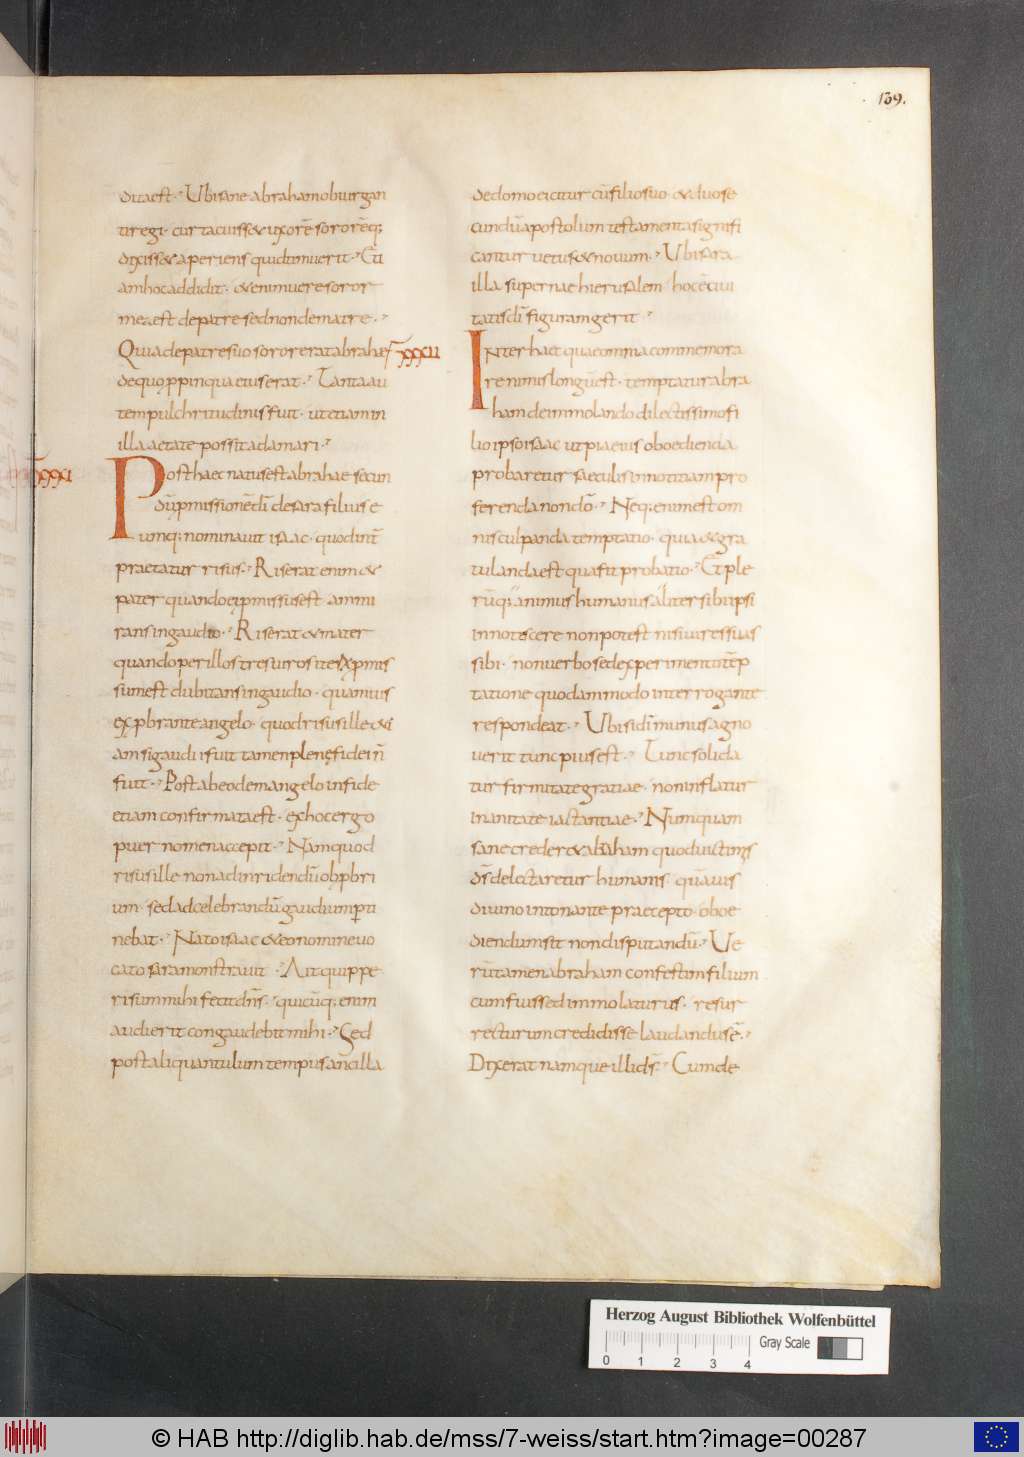 139.
ditaest. Ubi sane abraham obiurgan
ti regi. cur tacuiss& uxorē sororēq;
dixiss& aperiens quid timuerit. Eti
am hoc addidit. &enim uere soror
mea est de patre sed non de matre.
Quia de patre suo soror erat abrahae
de quo ppinqua eius erat. Tanta au
tem pulchritudinis fuit. ut etiam in
illa aetate possit adamari.
Post haec natus est abrahae secun
dū pmissionē dī de sara filius e
umq; nominauit isaac. quod int̄
praetatur risus. Riserat enim &
pater quando ei pmissus est ammi
rans in gaudio. Riserat & mater
quando per illos tres uiros iter
sum est dubitans in gaudio. quamuis
expbrante angelo. quod risus ille &si
am si gaudii fuit tamen plenę fidei n̄
fuit. Post ab eodem angelo in fide
etiam confirmata est. ex hoc ergo
puer nomen accepit. Nam quod
risus ille non ad inridendū obpbri
um. sed ad celebrandū gaudium pti
nebat. Nato isaac & eo nomine uo
cato sara monstrauit. Ait quippe
risum mihi fecit dn̄s. quicūq; enim
audierit congaudebit mihi. Sed
post aliquantulum tempus ancilla
de domo eicitur cū filio suo. & duo se
cundū apostolum testamenta signifi
cantur uetus & nouum. Ubi sara
illa supernae hierusalem hoc ē ciui
tatis dī figuram gerit
Inter haec quae omnia commemora
re nimis longū est. temptatur abra
ham de immolando dilectissimo fi
lio ipso isaac ut pia eius oboedientia
probaretur saeculis in notitiam pro
ferenda non dō. Neq; enim est om
nis culpanda temptatio. quia & gra
tulanda est qua fit probatio. Et ple
rūq; animus humanus aliter sibi ipsi
innotescere non potest nisi uires suas
sibi. non uerbo sed experimento tēp
tatione quodammodo interrogante
respondeat. Ubi si dī munus agno
uerit tunc pius est. Tunc solida
tur firmitate gratiae. non inflatur
inanitate iactantiae. Numquam
sane creder& abraham quod uictimis
ds̄ delectaretur humanis. quāuis
diuino intonante praecepto. oboe
diendum sit non disputandū. Ue
rū tamen abraham confestim filium
cum fuiss& immolaturus. resur
recturum credidisse laudandus ē.
Dixerat namque illi ds̄. Cum de
Herzog August Bibliothek Wolfenbüttel
Gray Scale
0 1 2 3 4
© HAB http://diglib.hab.de/mss/7-weiss/start.htm?image=00287